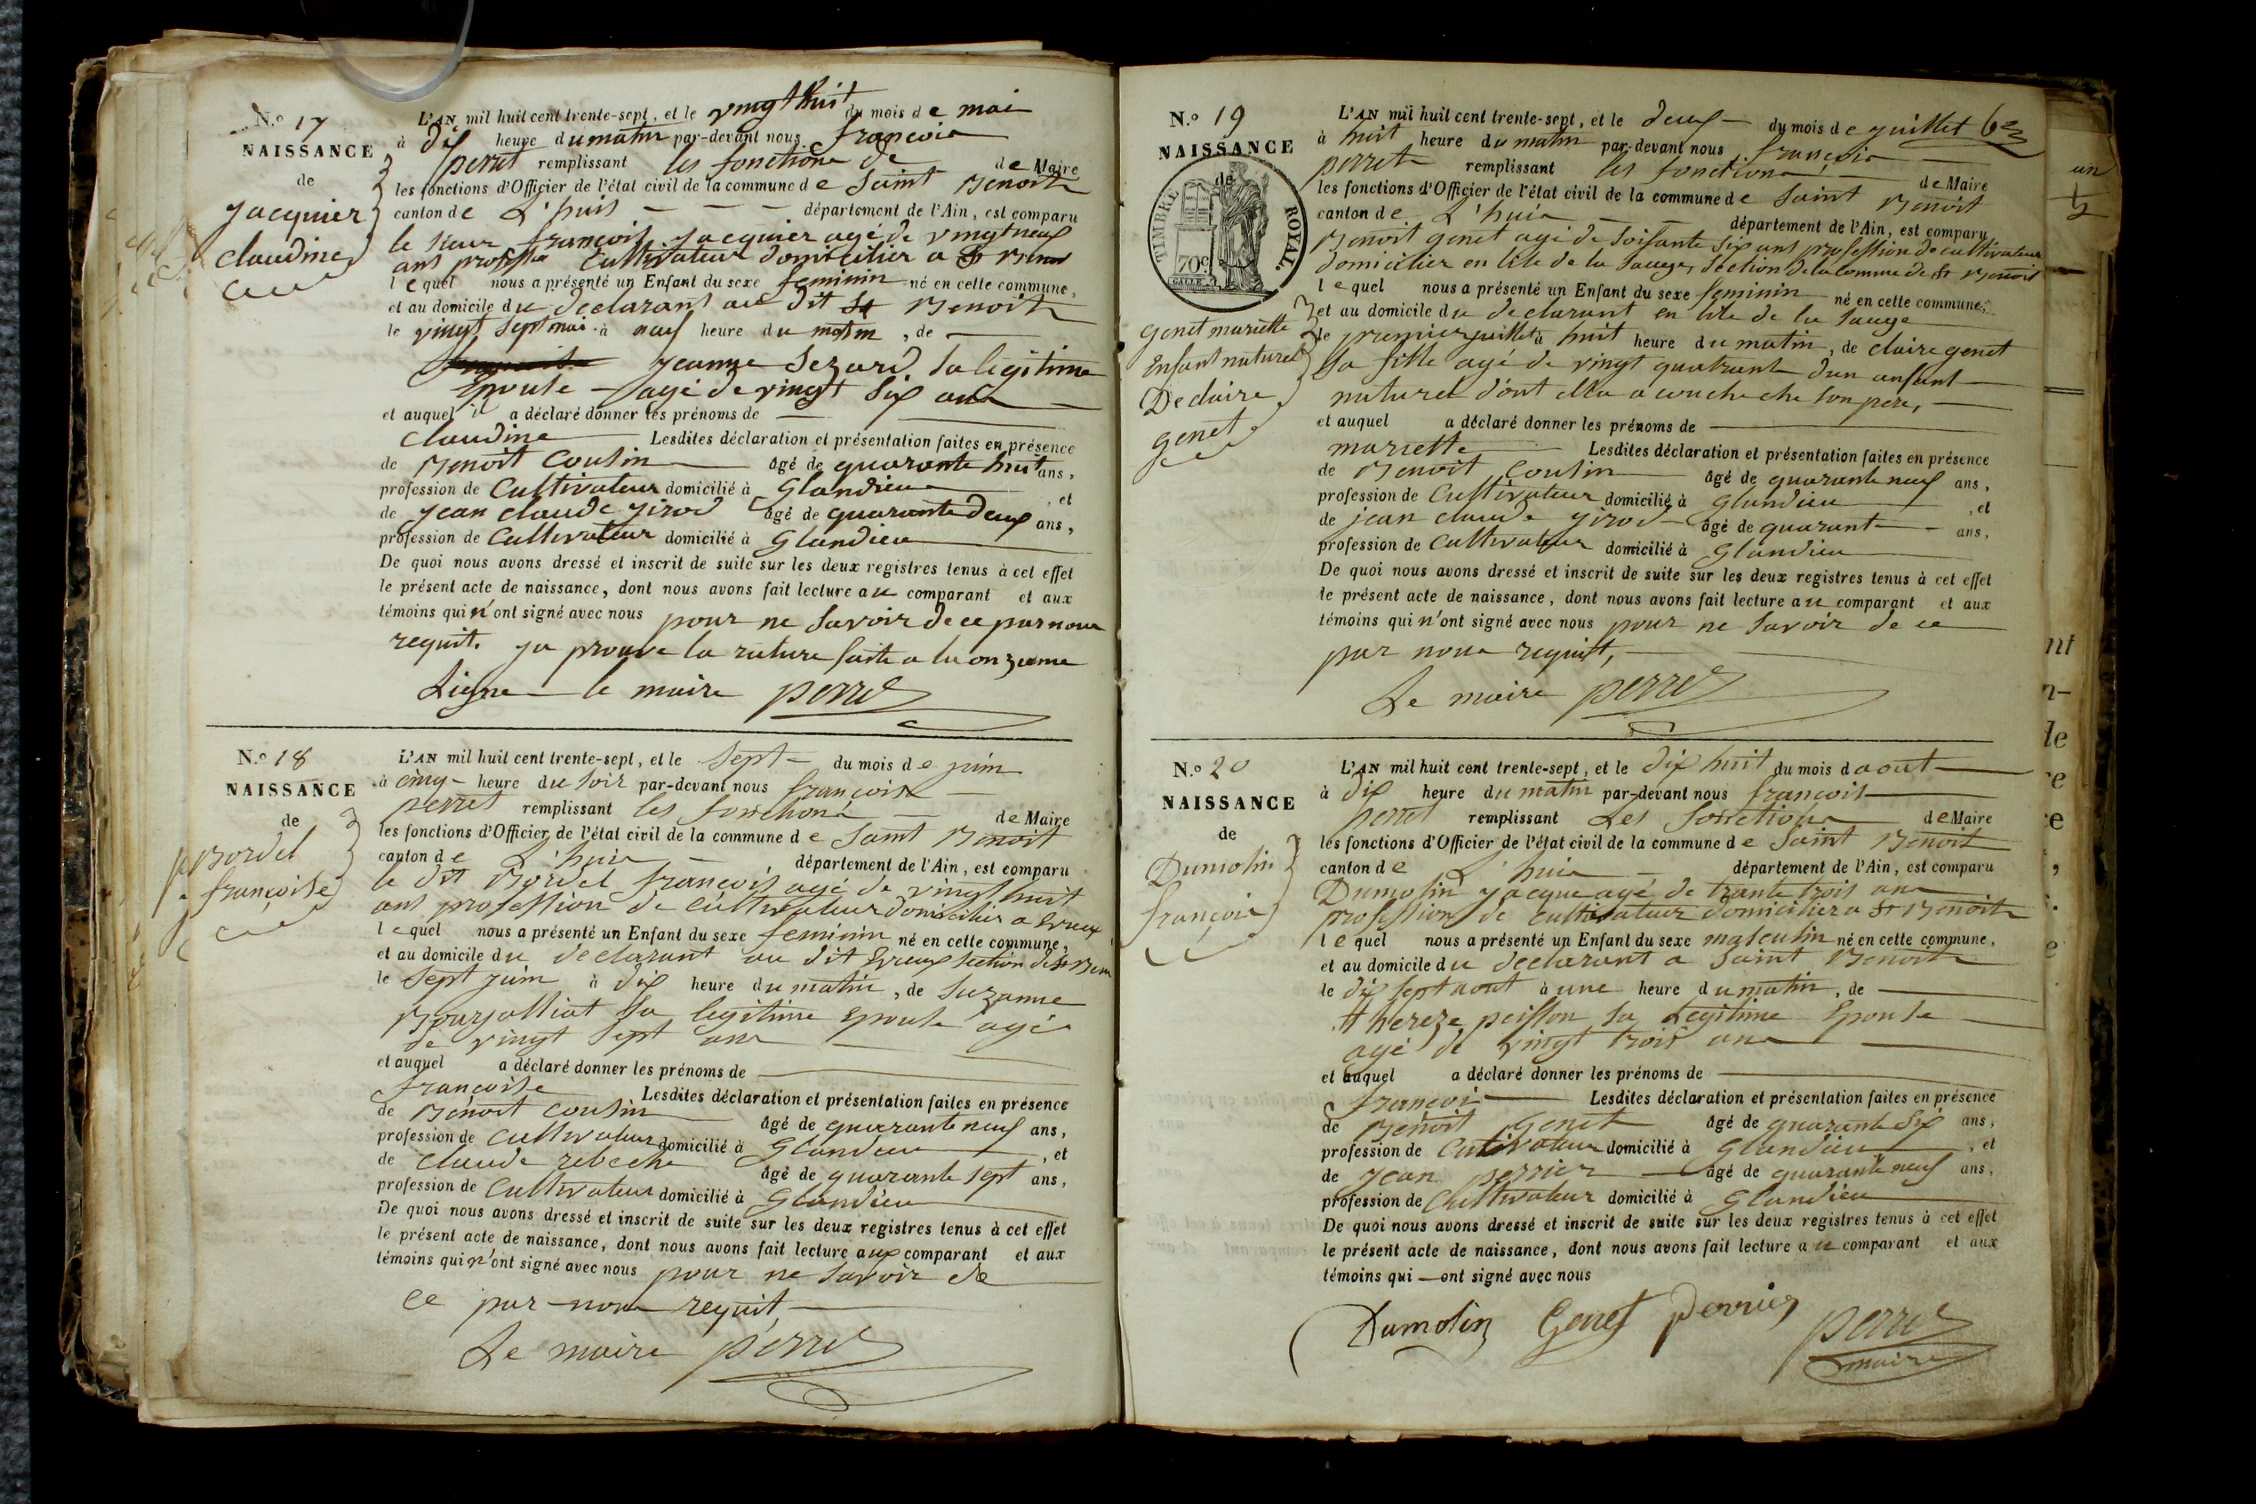 N.o 17
NAISSANCE
de
jacquier
claudine
L'AN mil huit cent trente-sept, et le vingt huit du mois de mai
à dix heure du matin par-devant nous françois
perret remplissant les fonctions de de Maire
les fonctions d'Officier de l'état civil de la commune de Saint Benoit
canton de L'huis département de l'Ain, est comparu
le sieur françois jacquier agé de vingt neuf
ans professio cultivateur domicilier a St Benoit
lequel nous a présenté un Enfant du sexe feminin né en cette commune,
et au domicile du declarant au dit St Benoit
le vingt sept mai à neuf heure du matin, de
jeanne sezard sa legitime
Epouse agé de vingt six ans
et auquel il a déclaré donner les prénoms de
claudine Lesdites déclaration et présentation faites en présence
de Benoit cousin âgé de quarante huit ans,
profession de cultivateur domicilié à Glandieu, et
de jean claude girod âgé de quarante deux ans,
profession de cultivateur domicilié à Glandieu
De quoi nous avons dressé et inscrit de suite sur les deux registres tenus à cet effet
le présent acte de naissance, dont nous avons fait lecture au comparant et aux
témoins qui n'ont signé avec nous pour ne savoir de ce par nous
requit. ja prouve la rature faite a la onzieme
Ligne le maire perret
N.o 18
NAISSANCE
de
Bordel
françoise
L'AN mil huit cent trente-sept, et le sept du mois de juin
à cinq heure du soir par-devant nous françois
perret remplissant les fonctions de Maire
les fonctions d'Officier de l'état civil de la commune de Saint Benoit
canton de L'huis département de l'Ain, est comparu
le dit Bordel françois agé de vingt huit
ans profession de cultivateur domicilier a Evieux
lequel nous a présenté un Enfant du sexe feminin né en cette commune,
et au domicile du declarant au dit Evieux section de St Beno
le sept juin à dix heure du matin, de suzanne
Bourjalliat sa legitime Epouse agé
de vingt sept ans
et auquel a déclaré donner les prénoms de
françoise Lesdites déclaration et présentation faites en présence
de Benoit cousin âgé de quarante neuf ans,
profession de cultivateur domicilié à Glandieu, et
de claude rebeche âgé de quarante sept ans,
profession de cultivateur domicilié à Glandieu
De quoi nous avons dressé et inscrit de suite sur les deux registres tenus à cet effet
le présent acte de naissance, dont nous avons fait lecture aux comparant et aux
témoins qui n'ont signé avec nous pour ne savoir de
ce par nous requit,
Le maire perret
N.o 19
NAISSANCE
de
TIMBRE ROYAL.
70c
genet mariette
Enfant naturel
De claire
genet
L'AN mil huit cent trente-sept, et le deux du mois de juillet
à huit heure du matin par-devant nous françois
perret remplissant les fonctions de Maire
les fonctions d'Officier de l'état civil de la commune de Saint Benoit
canton de L'huis département de l'Ain, est comparu
Benoit genet agé de soisante six ans profession de cultivateur
domicilier en lile de la sauge, section de la commune de St Benoit
lequel nous a présenté un Enfant du sexe feminin né en cette commune,
et au domicile du declarant en lile de la sauge
le premier juillet à huit heure du matin, de claire genet
sa fille agé de vingt quatrant d'un anfant
naturel d'ont ella a couche che son pere,
et auquel a déclaré donner les prénoms de
mariette Lesdites déclaration et présentation faites en présence
de Benoit cousin âgé de quarante neuf ans,
profession de cultivateur domicilié à Glandieu, et
de jean claude girod âgé de quarant ans,
profession de cultivateur domicilié à Glandieu
De quoi nous avons dressé et inscrit de suite sur les deux registres tenus à cet effet
le présent acte de naissance, dont nous avons fait lecture au comparant et aux
témoins qui n'ont signé avec nous pour ne savoir de ce
par nous requit,
Le maire perret
N.o 20
NAISSANCE
de
Dumolin
françois
L'AN mil huit cent trente-sept, et le dix huit du mois d aout
à dix heure du matin par-devant nous françois
perret remplissant Les fonctions de Maire
les fonctions d'Officier de l'état civil de la commune de Saint Benoit
canton de L'huis département de l'Ain, est comparu
Dumolin jacque agé de trante trois ans
profession de cultivateur domicilier a St Benoit
lequel nous a présenté un Enfant du sexe masculin né en cette commune,
et au domicile du declarant a Saint Benoit
le dix sept aout à une heure du matin, de
thereze peisson sa Legitime Epouse
agé de vingt trois ans
et auquel a déclaré donner les prénoms de
françois Lesdites déclaration et présentation faites en présence
de Benoit Genet âgé de quarante six ans,
profession de cultivateur domicilié à Glandieu, et
de jean perrier âgé de quarante neuf ans,
profession de Cultivateur domicilié à Glandieu
De quoi nous avons dressé et inscrit de suite sur les deux registres tenus à cet effet
le présent acte de naissance, dont nous avons fait lecture au comparant et aux
témoins qui ont signé avec nous
Dumolin Genet perrier perret
maire